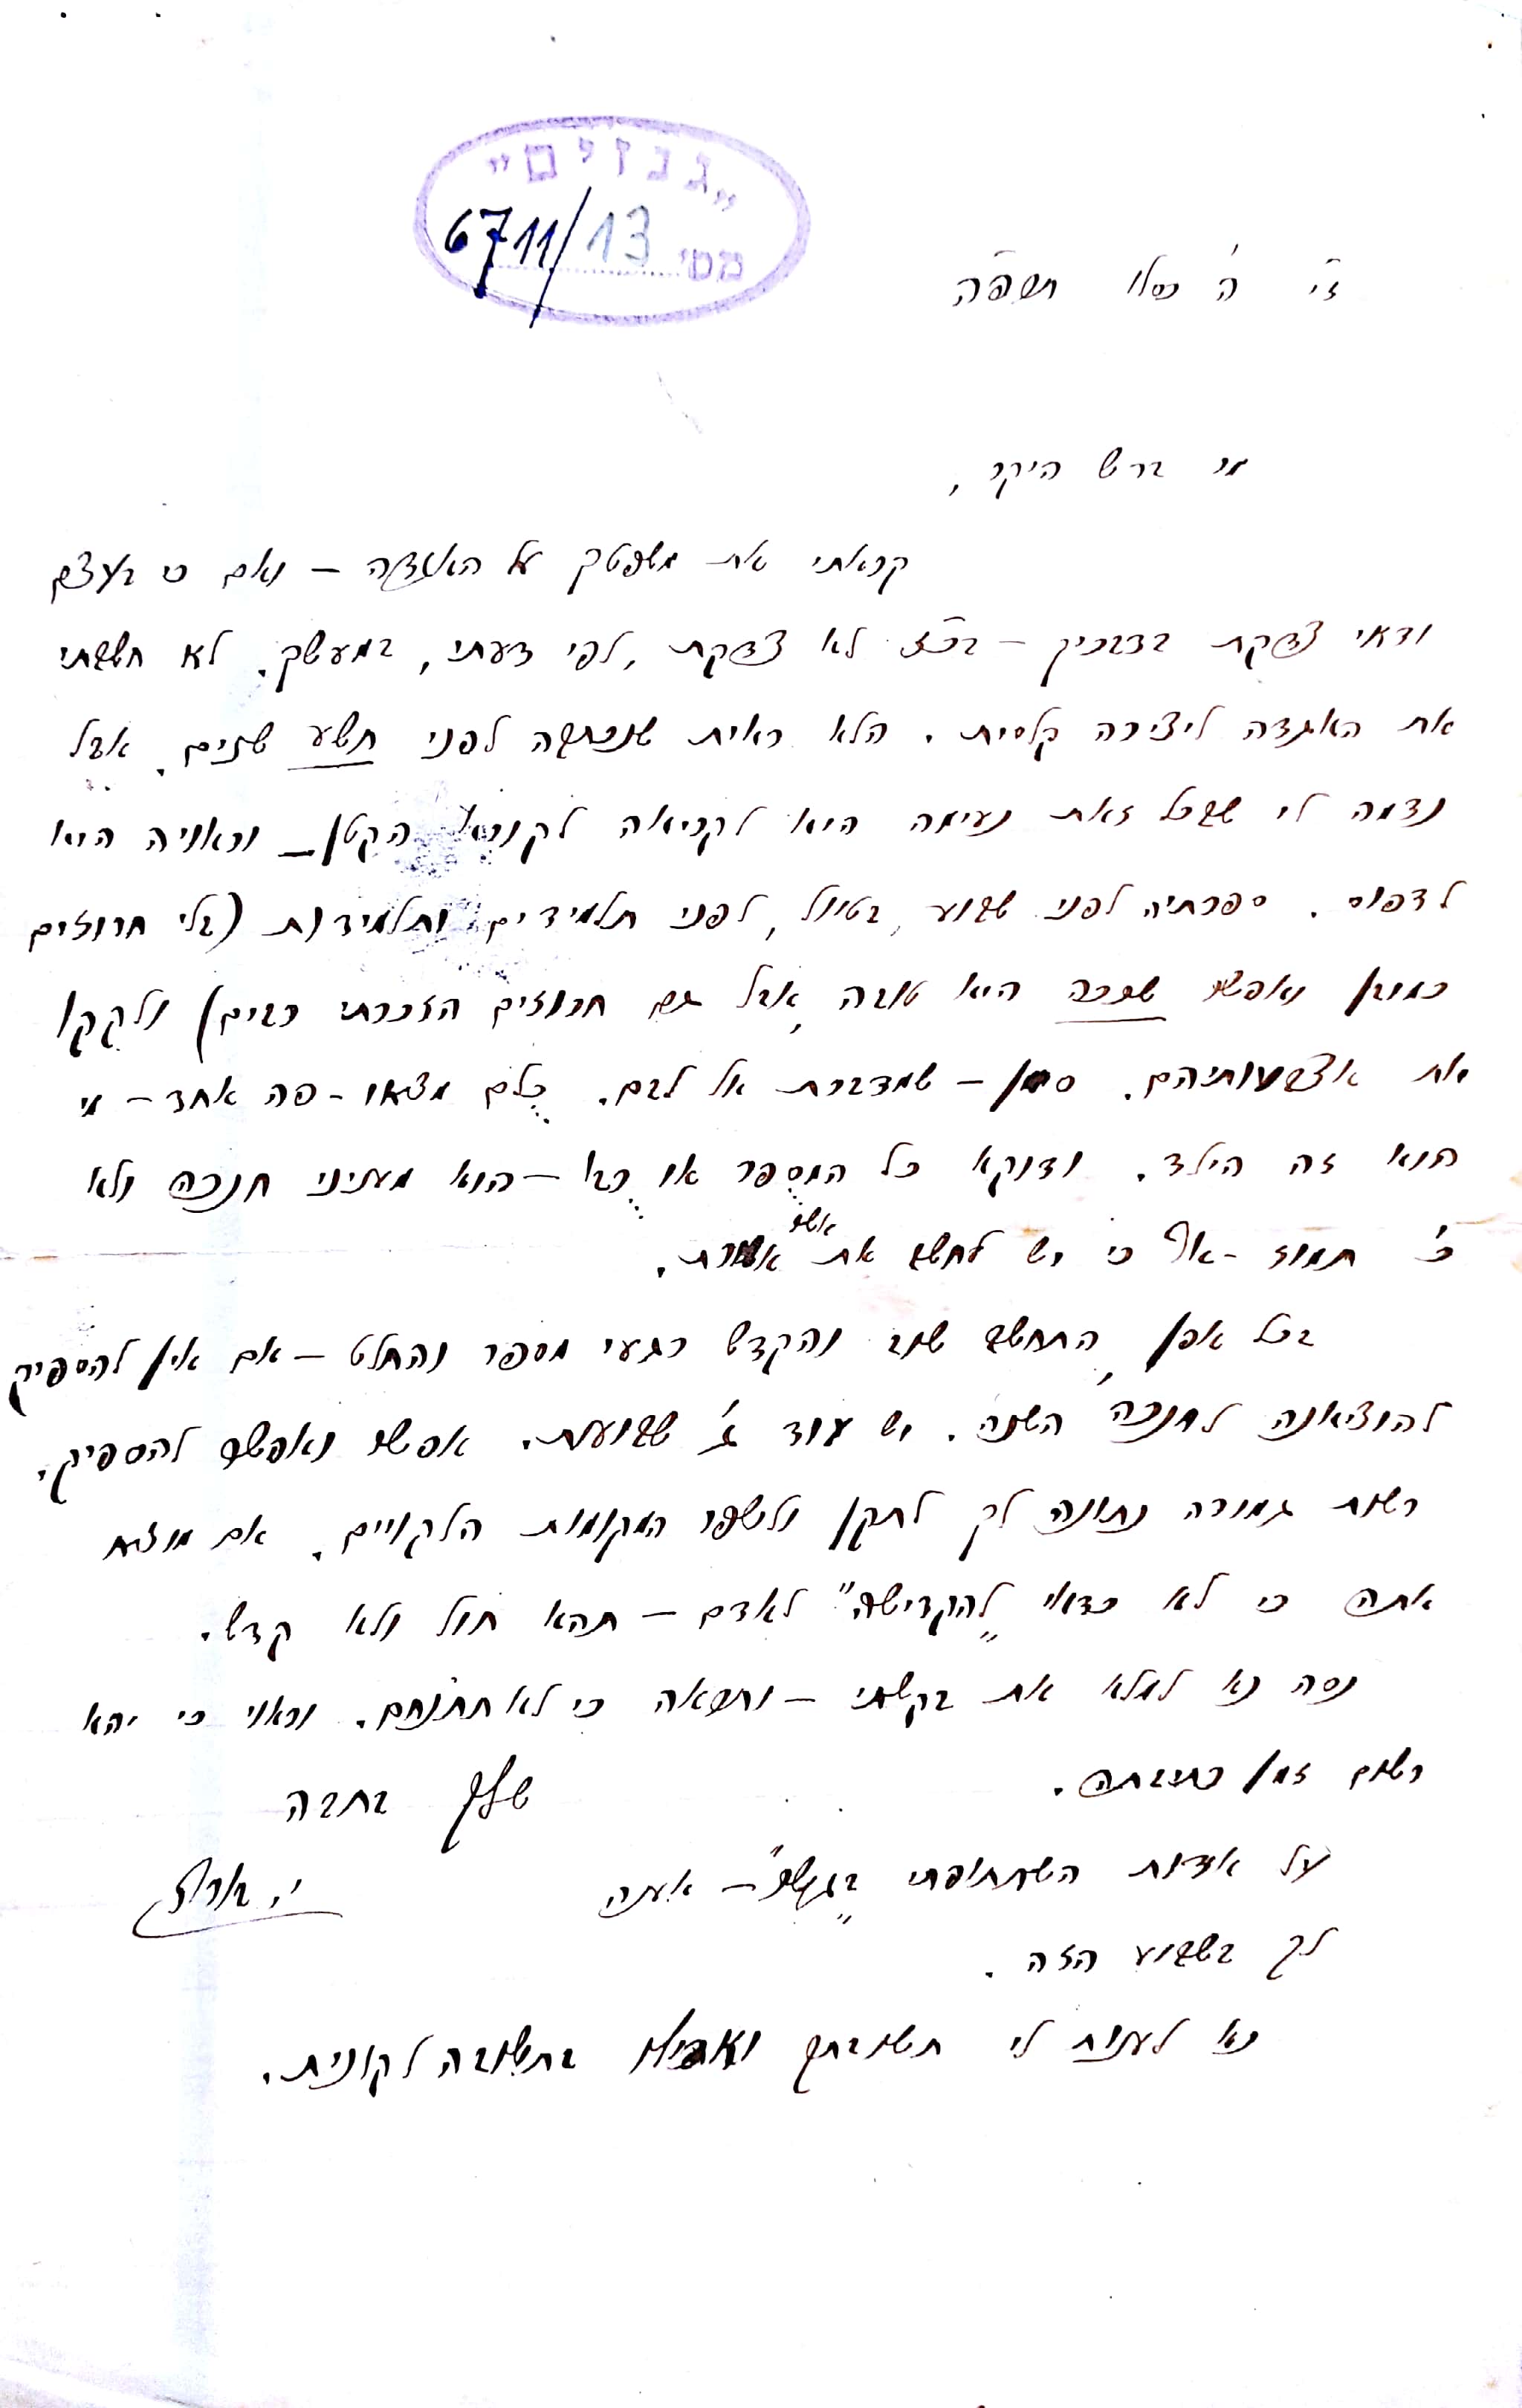 "גנזים"
מס' 6711/13
ה' כסלו תרפ"ה
מר ברש היקר,
קראתי את משפטך על האגדה – ואם כי בעצם
ודאי צדקת בדבריך – בכ"ז לא צדקת, לפי דעתי, במעשך. לא חשבתי
את האגדה ליצירה קלסית. הלא ראית שנכתבה לפני תשע שנים. אבל
נדמה לי שבכל זאת נעימה היא לקריאה לקורא הקטן – וראויה היא
לדפוס. ספרתיה לפני שבוע, בטיול, לפני תלמידים ותלמידות (בלי חרוזים
כמובן ואפשר שככה היא טובה, אבל גם חרוזים הזכרתי רבים) ולקקו
את אצבעותיהם. סמן – שמדברת אל לבם. כלם מצאו – פה אחד – מי
הוא זה הילד. ודוקא כל המספר או רבו – הוא מעניני חנכה ולא
כ' תמוז – אף כי יש לחשב את אשר
בכל אפן, התחשב שוב והקדש רגעי מספר והחלט – אם אין להספיק
להוציאנה לחנכה השנה. יש עוד ג' שבועות. אפשר ואפשר להספיק.
רשות גמורה נתונה לך לתקן ולשפר המקומות הלקויים. אם מוצא
אתה כי לא כדאי "להקדישה" לאדם – תהא חול ולא קדש.
נסה נא למלא את בקשתי – ותראה כי לא תתנחם. וראוי כי יהא
רשום זמן כתיבתה.
שלך בתבה
על אדות השתתפותי – אענה
לך בשבוע הזה.
נא לענות לי תשובתך ואפילו בתשובה לקונית.